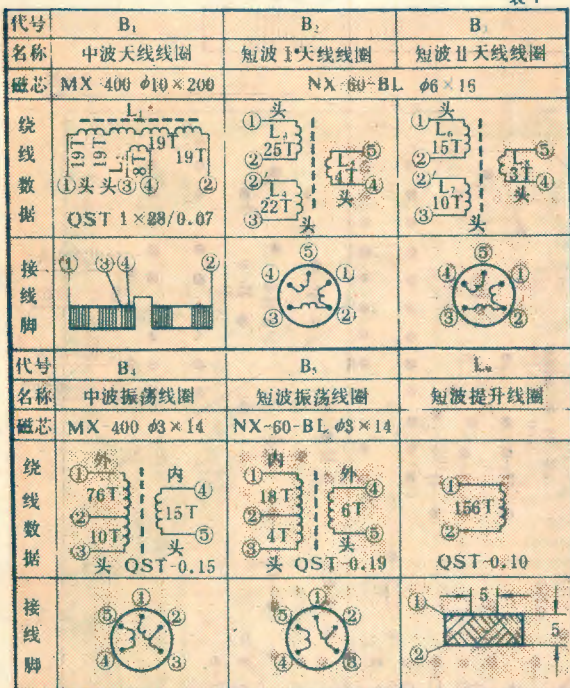 表1
代号 B₁ B₂ B₃
名称 中波天线线圈 短波Ⅰ天线线圈 短波Ⅱ天线线圈
磁芯 MX-400 ϕ10×200 NX-60-BL ϕ6×16
绕线数据
L₁
19T 19T 19T 19T
L₂ 8T
① 头 头 ③ ④ ②
QST 1×28/0.07
头
① L₃ 25T ②
②′ L₄ 22T ③
头
⑤ L₅ 4T ④
头
头
① L₆ 15T ②
②′ L₇ 10T ③
头
⑤ L₈ 3T ④
头
接线脚
① ③④ ②
⑤ ④ ① ③ ②
⑤ ④ ① ③ ②
代号 B₄ B₅
名称 中波振荡线圈 短波振荡线圈 短波提升线圈
磁芯 MX-400 ϕ3×14 NX-60-BL ϕ3×14
绕线数据
外 内
① 76T ② 10T ③
④ 15T ⑤
头 头
QST-0.15
内 外
① 18T ② 4T ③
④ 6T ⑤
头 头
QST-0.19
① 156T ②
QST-0.10
接线脚
① ⑤ ② ④ ③
① ⑤ ② ④ ③
① 5
② 5